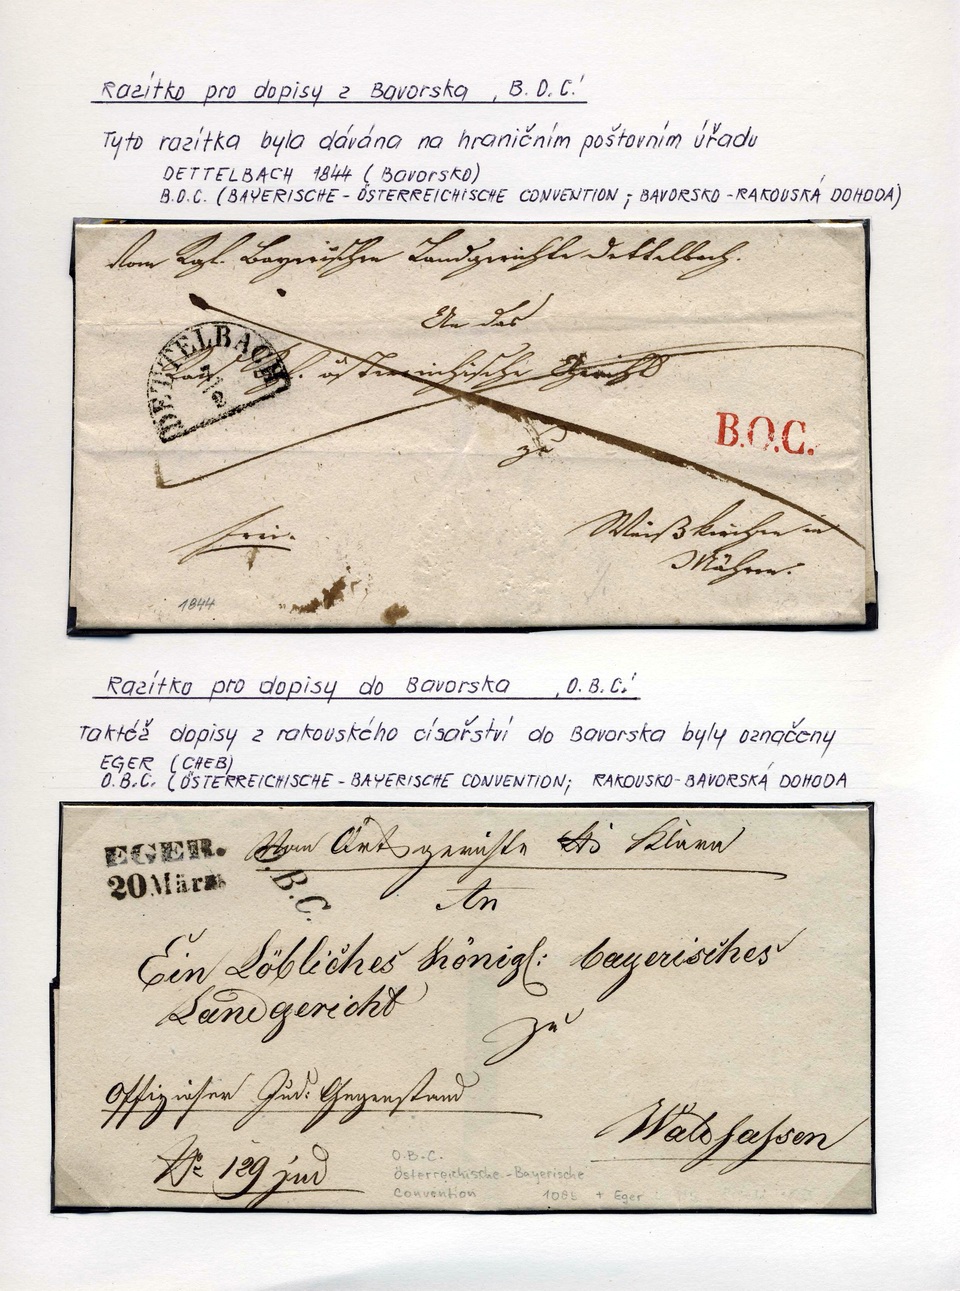 Razítko pro dopisy z Bavorska „B.O.C.“
Tyto razítka byla dávána na hraničním poštovním úřadu
DETTELBACH 1844 (Bavorsko)
B.O.C. (BAYERISCHE-ÖSTERREICHISCHE CONVENTION; BAVORSKO-RAKOUSKÁ DOHODA)
Vom Kgl. Bayerischen Landgerichte Dettelbach.
An das
DETTELBACH
österreichische Gericht
2
B.O.C.
zu
frei.
Weißkirchen in
Mähren.
1844
Razítko pro dopisy do Bavorska „O.B.C.“
Taktéž dopisy z rakouského císařství do Bavorska byly označeny
EGER (CHEB)
O.B.C. (ÖSTERREICHISCHE-BAYERISCHE CONVENTION; RAKOUSKO-BAVORSKÁ DOHODA
EGER.
20 März
O.B.C.
Vom Ortsgerichte
An
Ein Löbliches Königl: bayerisches
Landgericht
zu
Jud: Gegenstand
Waldsassen
No 129 jud
O.B.C.
Österreichische-Bayerische
Convention
+ Eger